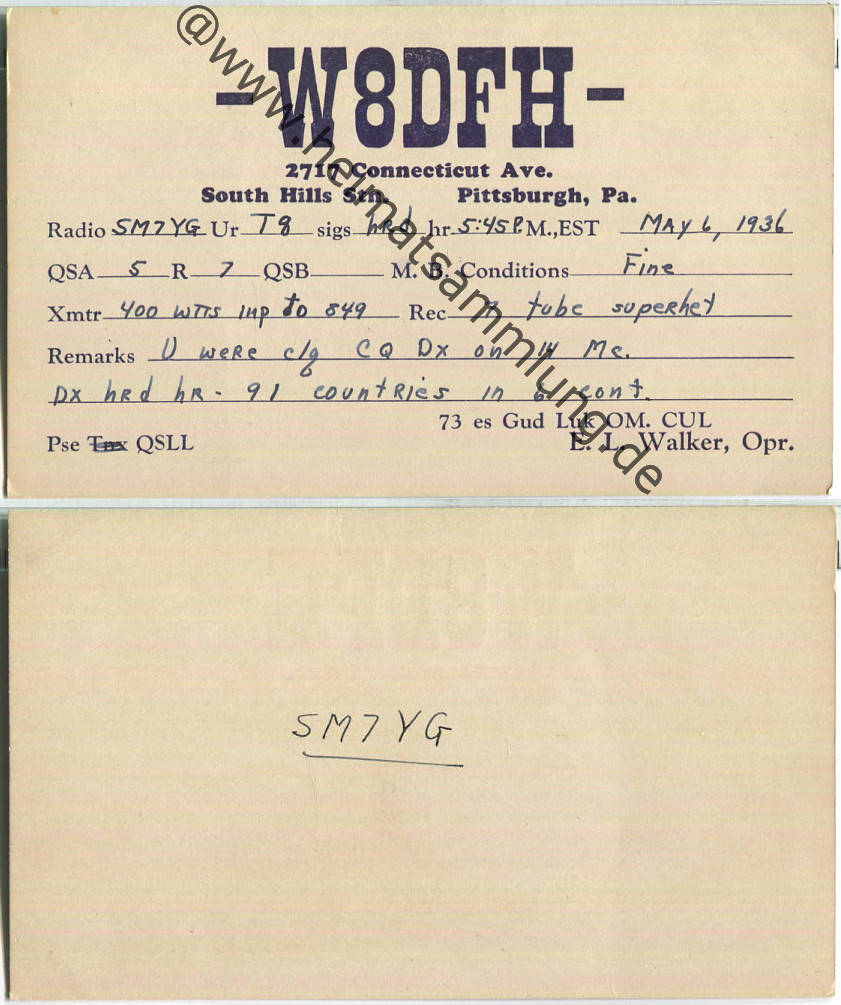 -W8DFH-
2717 Connecticut Ave.
South Hills Stn. Pittsburgh, Pa.
Radio SM7YG Ur T9 sigs hrd hr 5:45 P. M., EST MAY 6, 1936
QSA 5 R 7 QSB M. B. Conditions Fine
Xmtr 400 WTTS inp to 849 Rec 9 tube superhet
Remarks U were clg CQ Dx on 14 Mc.
DX hrd hr - 91 countries in 6 cont.
73 es Gud Luk OM. CUL
Pse Tnx QSLL E. L. Walker, Opr.
@www.heimatsammlung.de
SM7YG